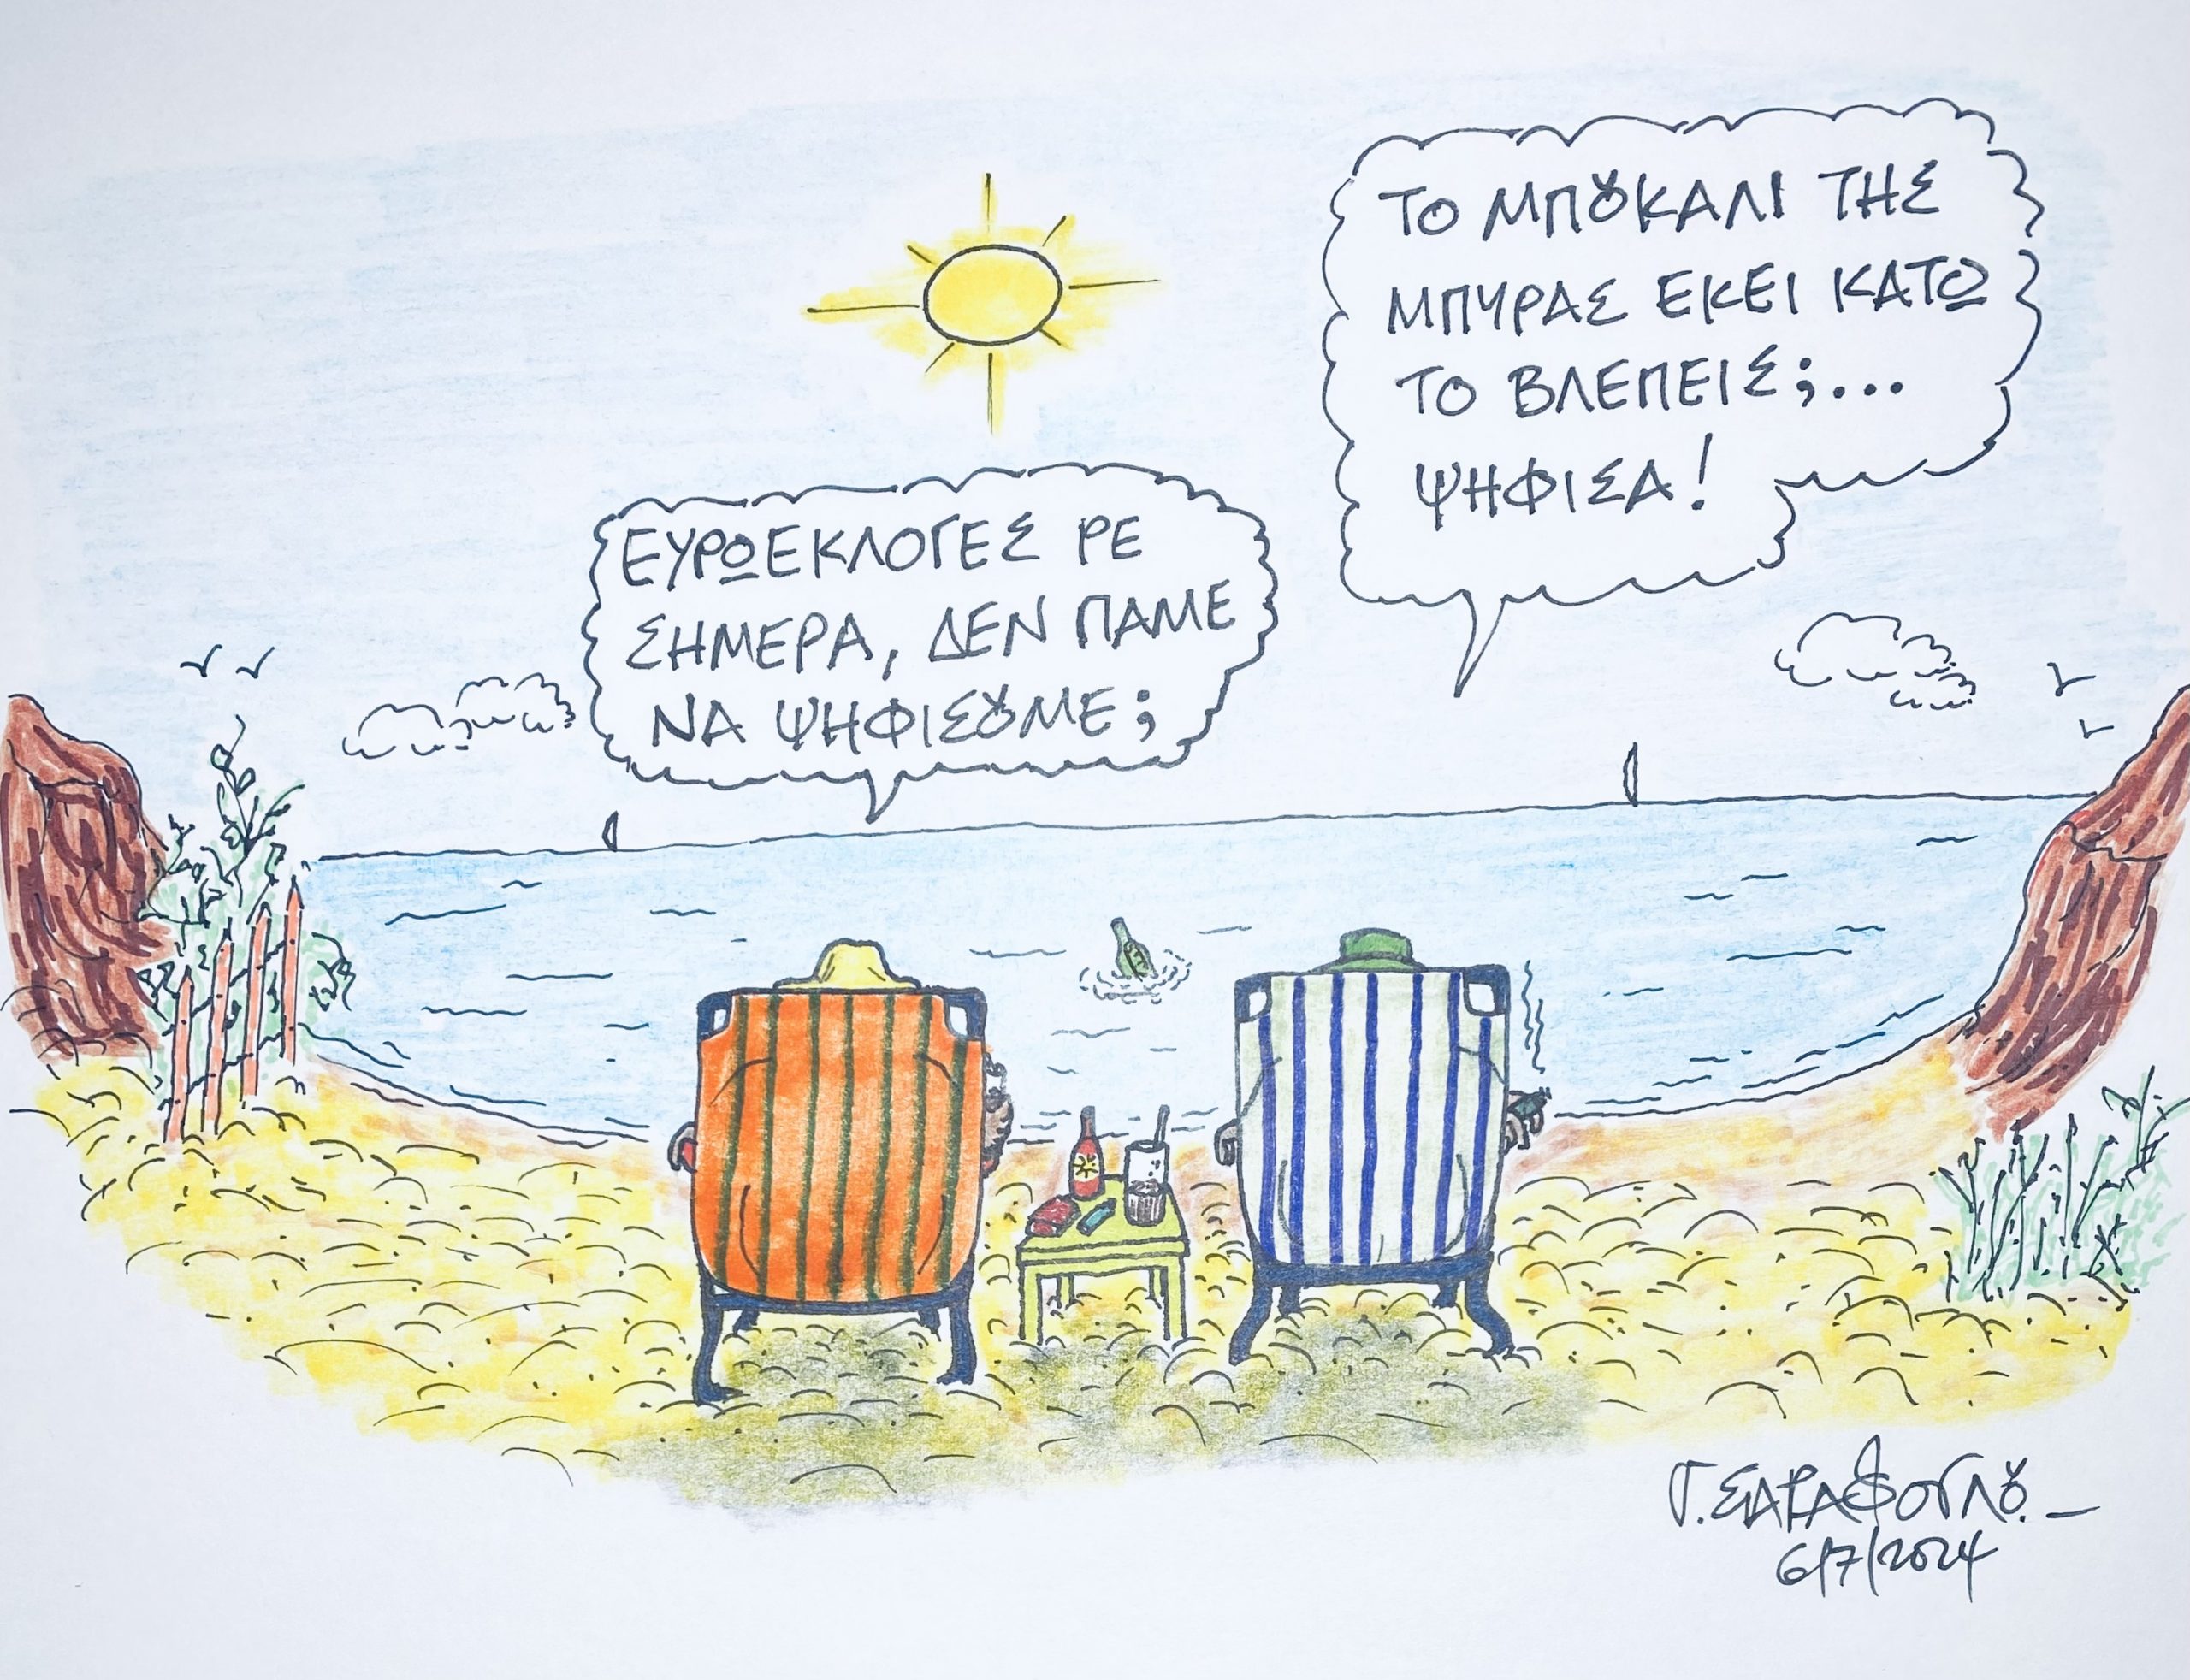 ΕΥΡΩΕΚΛΟΓΕΣ ΡΕ
ΣΗΜΕΡΑ, ΔΕΝ ΠΑΜΕ
ΝΑ ΨΗΦΙΣȢΜΕ;
ΤΟ ΜΠȢΚΑΛΙ ΤΗΣ
ΜΠΥΡΑΣ ΕΚΕΙ ΚΑΤΩ
ΤΟ ΒΛΕΠΕΙΣ;...
ΨΗΦΙΣΑ!
Γ. ΣΑΡΑΦΟΓΛȢ.
6/7/2024